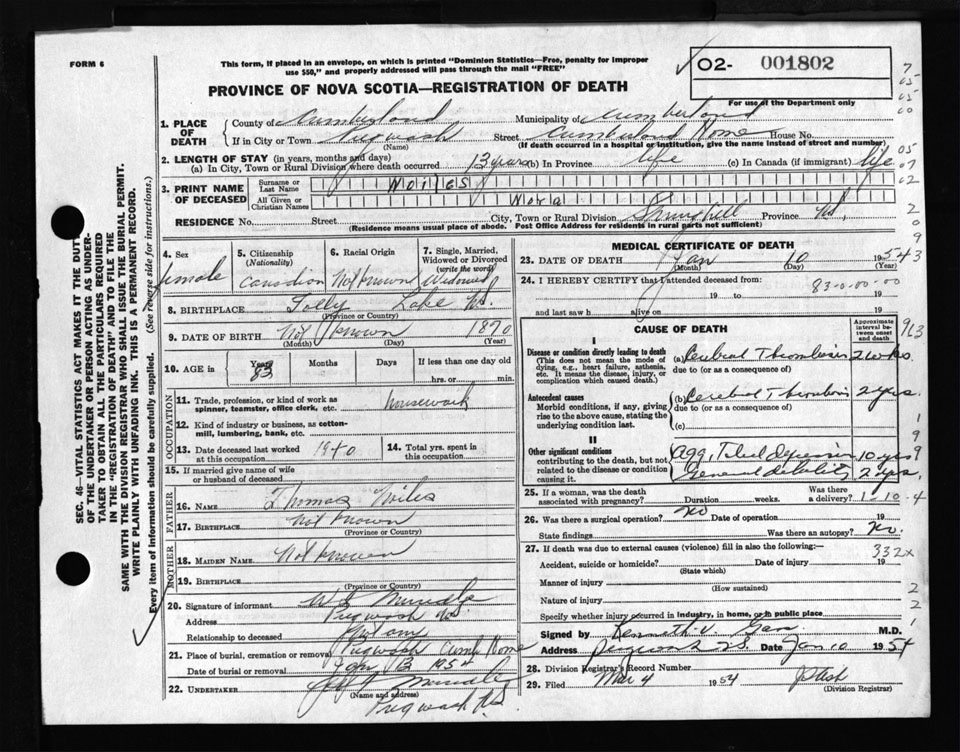 FORM 6
This form, if placed in an envelope, on which is printed "Dominion Statistics—Free, penalty for improper
use $50," and properly addressed will pass through the mail "FREE"
O2- 001802
For use of the Department only
PROVINCE OF NOVA SCOTIA—REGISTRATION OF DEATH
1. PLACE OF DEATH County of Cumberland Municipality of Cumberland
If in City or Town Pugwash (Name) Street Cumberland Home House No.
(If death occurred in a hospital or institution, give the name instead of street and number)
2. LENGTH OF STAY (in years, months and days)
(a) In City, Town or Rural Division where death occurred 13 years (b) In Province life (c) In Canada (if immigrant) life
3. PRINT NAME OF DECEASED Surname or Last Name
All Given or Christian Names
RESIDENCE No. Street City, Town or Rural Division Province NS
(Residence means usual place of abode. Post Office Address for residents in rural parts not sufficient)
4. Sex female
5. Citizenship (Nationality) Canadian
6. Racial Origin Not known
7. Single, Married, Widowed or Divorced (write the word) Widowed
8. BIRTHPLACE Folly Lake NS.
(Province or Country)
9. DATE OF BIRTH Not known 1870
(Month) (Day) (Year)
10. AGE in Years 83 Months Days If less than one day old
hrs. or min.
OCCUPATION
11. Trade, profession, or kind of work as
spinner, teamster, office clerk, etc. housework
12. Kind of industry or business, as cotton-
mill, lumbering, bank, etc.
13. Date deceased last worked at this occupation 1940
14. Total yrs. spent in this occupation
15. If married give name of wife
or husband of deceased
FATHER
16. NAME Thomas Miles
17. BIRTHPLACE Not known
(Province or Country)
MOTHER
18. MAIDEN NAME Not known
19. BIRTHPLACE
(Province or Country)
20. Signature of informant
Address Pugwash NS
Relationship to deceased
21. Place of burial, cremation or removal Pugwash Cumb Home
Date of burial or removal Jan 13 1954
22. UNDERTAKER
(Name and address)
Pugwash NS
MEDICAL CERTIFICATE OF DEATH
23. DATE OF DEATH Jan 10 1954
(Month) (Day) (Year)
24. I HEREBY CERTIFY that I attended deceased from:
83-0-00-00
19 to 19
and last saw h alive on 19
CAUSE OF DEATH
Approximate interval between onset and death
I
Disease or condition directly leading to death
(This does not mean the mode of dying, e.g., heart failure, asthenia, etc. It means the disease, injury, or complication which caused death.)
(a) Cerebral Thrombosis 2 wks.
due to (or as a consequence of)
Antecedent causes
Morbid conditions, if any, giving rise to the above cause, stating the underlying condition last.
(b) Cerebral Thrombosis 2 yrs.
due to (or as a consequence of)
(c)
II
Other significant conditions
contributing to the death, but not related to the disease or condition causing it.
10 yrs
General debility 2 yrs.
25. If a woman, was the death
associated with pregnancy? Duration weeks. Was there a delivery?
1-10-4
26. Was there a surgical operation? No Date of operation 19
State findings Was there an autopsy? No.
27. If death was due to external causes (violence) fill in also the following:— 332x
Accident, suicide or homicide? Date of injury 19
(State which)
Manner of injury
(How sustained)
Nature of injury
Specify whether injury occurred in industry, in home, or in public place
Signed by Kenneth V. M.D.
Address N.S. Date Jan 10 1954
28. Division Registrar's Record Number
29. Filed Mar 4 1954
(Division Registrar)
SEC. 46—VITAL STATISTICS ACT MAKES IT THE DUTY
OF THE UNDERTAKER OR PERSON ACTING AS UNDER-
TAKER TO OBTAIN ALL THE PARTICULARS REQUIRED
IN THE "REGISTRATION OF DEATH" AND TO FILE THE
SAME WITH THE DIVISION REGISTRAR WHO SHALL ISSUE THE BURIAL PERMIT.
WRITE PLAINLY WITH UNFADING INK. THIS IS A PERMANENT RECORD.
Every item of information should be carefully supplied. (See reverse side for instructions.)